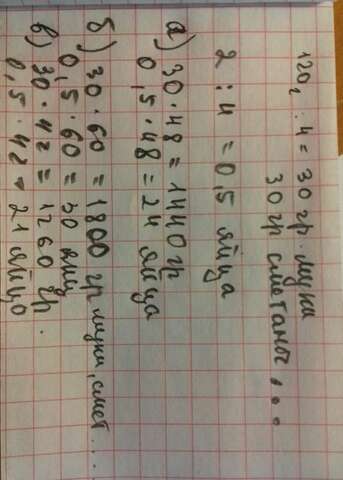 120г : 4 = 30 гр. муки
30 гр сметаны...
2 : 4 = 0,5 яйца
а) 30 · 48 = 1440 гр
0,5 · 48 = 24 яйца
б) 30 · 60 = 1800 гр муки, смет...
0,5 · 60 = 30 яиц
в) 30 · 42 = 1260 гр.
0,5 · 42 = 21 яйцо